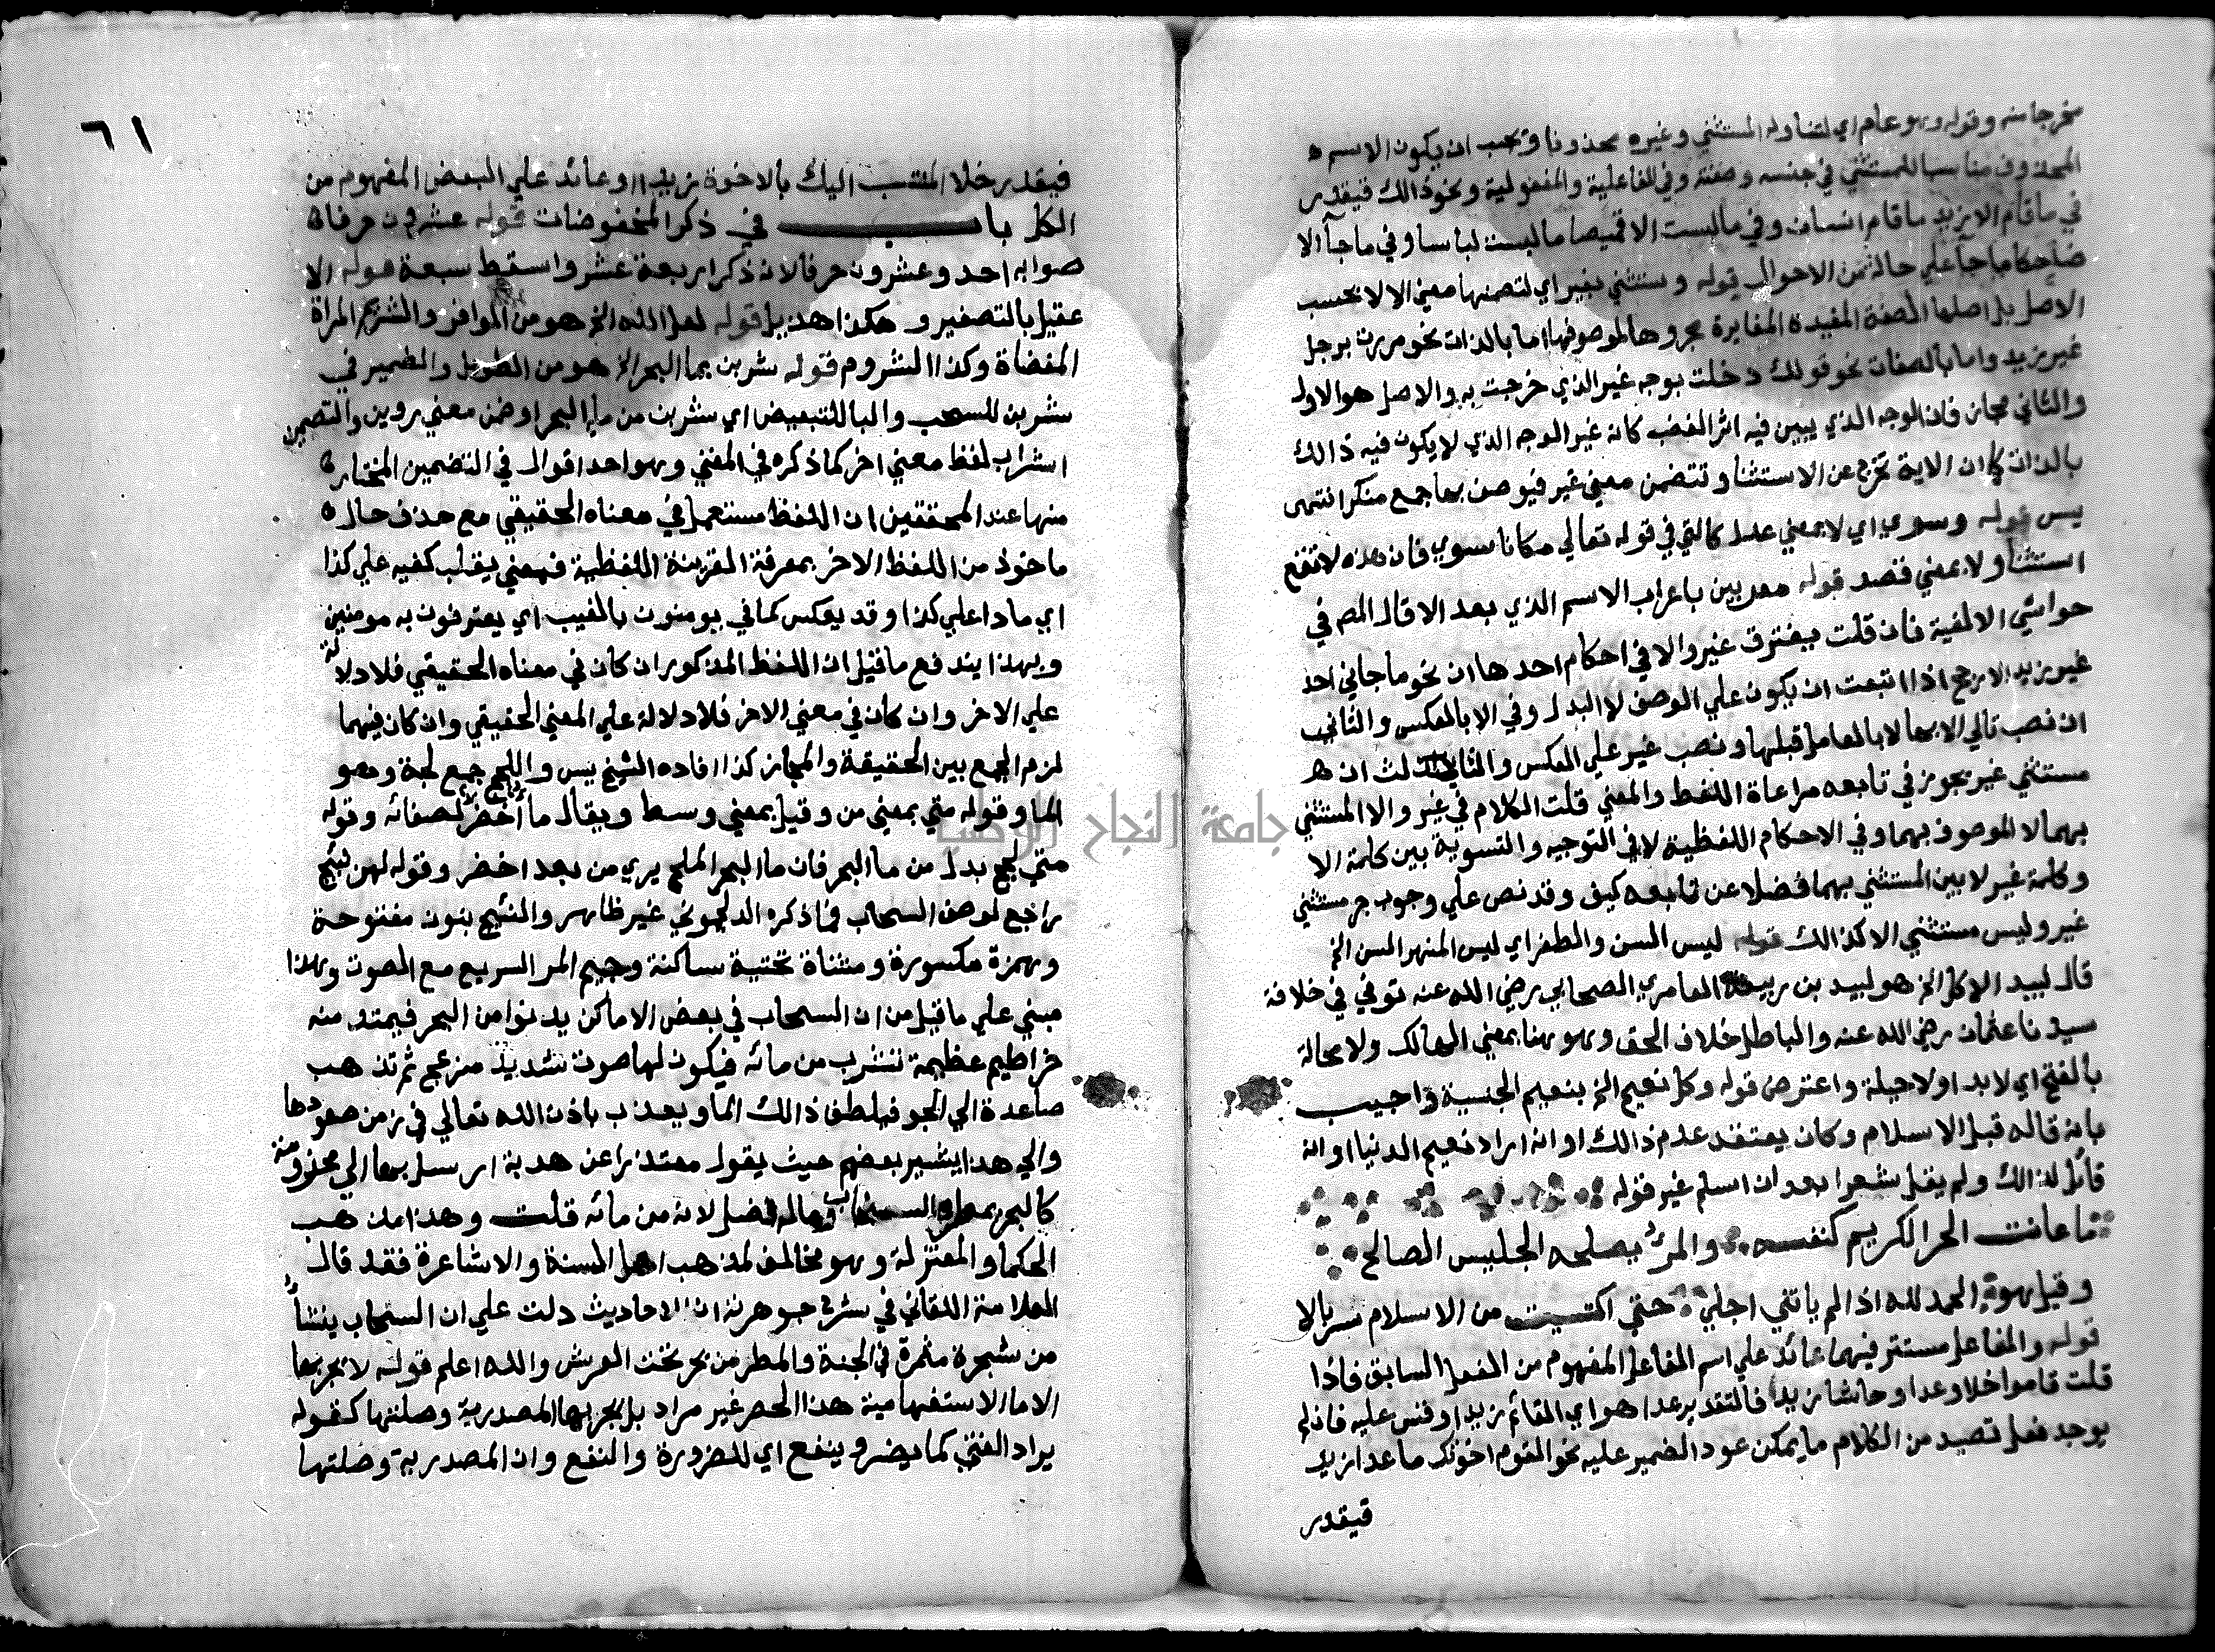 مخرجا منه وقوله وهو عام اي لتناوله المستثني وغيره محذوفا ويجب ان يكون الاسم ه
المحذوف مناسبا للمستثني في جنسه وصفته وفي الفاعلية والمفعولية ونحو ذالك فيقدر
في ما قام الا زيد ما قام انسان وفي ما لبست الا قميصا ما لبست لباسا وفي ما جآ الا
ضاحكا ما جآ علي حالة من الاحوال قوله ويستثني بغير اي لتضمنها معني الا لا بحسب
الاصل بل اصلها الصفة المفيدة المغايرة مجرورها لموصوفها اما بالذات نحو مررت برجل
غير زيد واما بالصفات نحو قولك دخلت بوجه غير الذي خرجت به والاصل هو الاول
والثاني مجاز فان الوجه الذي يبين فيه اثر الغضب كانه غير الوجه الذي لا يكون فيه ذالك
بالذات كما ان الاية تخرج عن الاستثنا وتتضمن معني غير فيوصف بها جمع منكر انتهي
يس قوله وسوي اي لا بمعني عدل كالتي في قوله تعالي مكانا سوي فان هذه لا تقع
استثنأ ولا بمعني قصد قوله معربين باعراب الاسم الذي بعد الا قال المص في
حواشي الالفية فان قلت يفترق غير والا في احكام احدها ان نحو ما جاني احد
غير زيد الارجح اذا اتبعت ان يكون علي الوصف لا البدل وفي الا بالعكس والثاني
ان نصب تالي الا بها لا بالعامل قبلها ونصب غير علي العكس والثالث ان ه
مستثني غير يجوز في تابعه مراعاة اللفظ والمعني قلت الكلام في غير والا المستثني
بهما لا الموصوف بهما وفي الاحكام اللفظية لا في التوجيه والتسوية بين كلمة الا
وكلمة غير لا بين المستثني بهما فضلا عن تابعه كيف وقد نص علي وجوب جر مستثني
غير وليس مستثني الا كذالك قوله ليس السن والظفر اي ليس المنهر السن الخ
قال لبيد الا كل الخ هو لبيد بن ربيعة العامري الصحابي رضي الله عنه توفي في خلافة
سيدنا عثمان رضي الله عنه والباطل خلاف الحق وهو هنا بمعني الهالك ولا محالة
بالفتح اي لا بد او لا حيلة واعترض قوله وكل نعيم الخ بنعيم الجنة واجيب
بانه قاله قبل الاسلام وكان يعتقد عدم ذالك او انه اراد نعيم الدنيا او انه
قائل لذالك ولم يقل شعرا بعد ان اسلم غير قوله
ما عاتب الحر الكريم كنفسه والمرء يصلحه الجليس الصالح
وقيل هو الحمد لله اذ لم ياتني اجلي حتي اكتسيت من الاسلام سربالا
قوله والفاعل مستتر فيهما عائد علي اسم الفاعل المفهوم من الفعل السابق فاذا
قلت قاموا خلا وعدا وحاشا زيدا فالتقدير عدا هو اي القائم زيدا وقس عليه فان لم
يوجد فعل تصيد من الكلام ما يمكن عود الضمير عليه نحو القوم اخوتك ما عدا زيد
فيقدر
٦١
فيقدر خلا المنتسب اليك بالاخوة زيدا او عائد علي البعض المفهوم من
الكل باب في ذكر المخفوضات قوله عشرون حرفا ه
صوابه احد وعشرون حرفا لانه ذكر اربعة عشر واسقط سبعة قوله الا
عقيل بالتصغير وهكذا هذيل قوله لعل الله الخ هو من الوافر والشريم المراة
المفضاة وكذا الشروم قوله شربن بما البحر الخ هو من الطويل والضمير في
شربن للسحب والبا للتبعيض اي شربن من مأ البحر او ضمن معني روين والتضمين
اشراب لفظ معني اخر كما ذكره في المغني وهو احد اقوال في التضمين المختار ه
منها عند المحققين ان اللفظ مستعمل في معناه الحقيقي مع حذف حال ه
ماخوذ من اللفظ الاخر بمعرفة القرينة اللفظية فمعني يقلب كفيه علي كذا
اي نادما علي كذا وقد يعكس كما في يومنون بالغيب اي يعترفون به مومنين
وبهذا يندفع ما قيل ان اللفظ المذكور ان كان في معناه الحقيقي فلا دلالة
علي الاخر وان كان في معني الاخر فلا دلالة علي المعني الحقيقي وان كان فيهما
لزم الجمع بين الحقيقة والمجاز كذا افاده الشيخ يس واللجج جمع لجة وهو
الما وقوله متي بمعني من وقيل بمعني وسط ويقال ما أخضر لصفائه وقوله
متي لجج بدل من ما البحر فان ما البحر الملح يري من بعد اخضر وقوله لهن نئيج
راجع لوصف السحاب فما ذكره الدلجوني غير ظاهر والنئيج بنون مفتوحة
وهمزة مكسورة ومثناة تحتية ساكنة وجيم المر السريع مع الصوت وهذا
مبني علي ما قيل من ان السحاب في بعض الاماكن يدنوا من البحر فيمتد منه
خراطيم عظيمة تشرب من مائه فيكون لها صوت شديد مزعج ثم تذهب
صاعدة الي الجو فيلطف ذالك الما ويعذب باذن الله تعالي في زمن صعودها
والي هذا يشير بعضهم حيث يقول معتذرا عن هدية ارسل بها الي مخدومه
كالبحر يمطره السحاب وماله فضل لانه من مائه قلت وهذا مذهب
الحكما والمعتزلة وهو مخالف لمذهب اهل السنة والاشاعرة فقد قال
العلامة اللقاني في شرح جوهرته ان الاحاديث دلت علي ان السحاب ينشأ
من شجرة مثمرة في الجنة والمطر من بحر تحت العرش والله اعلم قوله لا يجر بها
الا ما الاستفهامية هذا الحصر غير مراد بل يجر بها المصدرية وصلتها كقوله
يراد الفتي كما يضر وينفع اي للضرورة والنفع وان المصدرية وصلتها